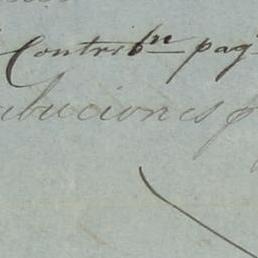 Contribn pag
ibuciones p